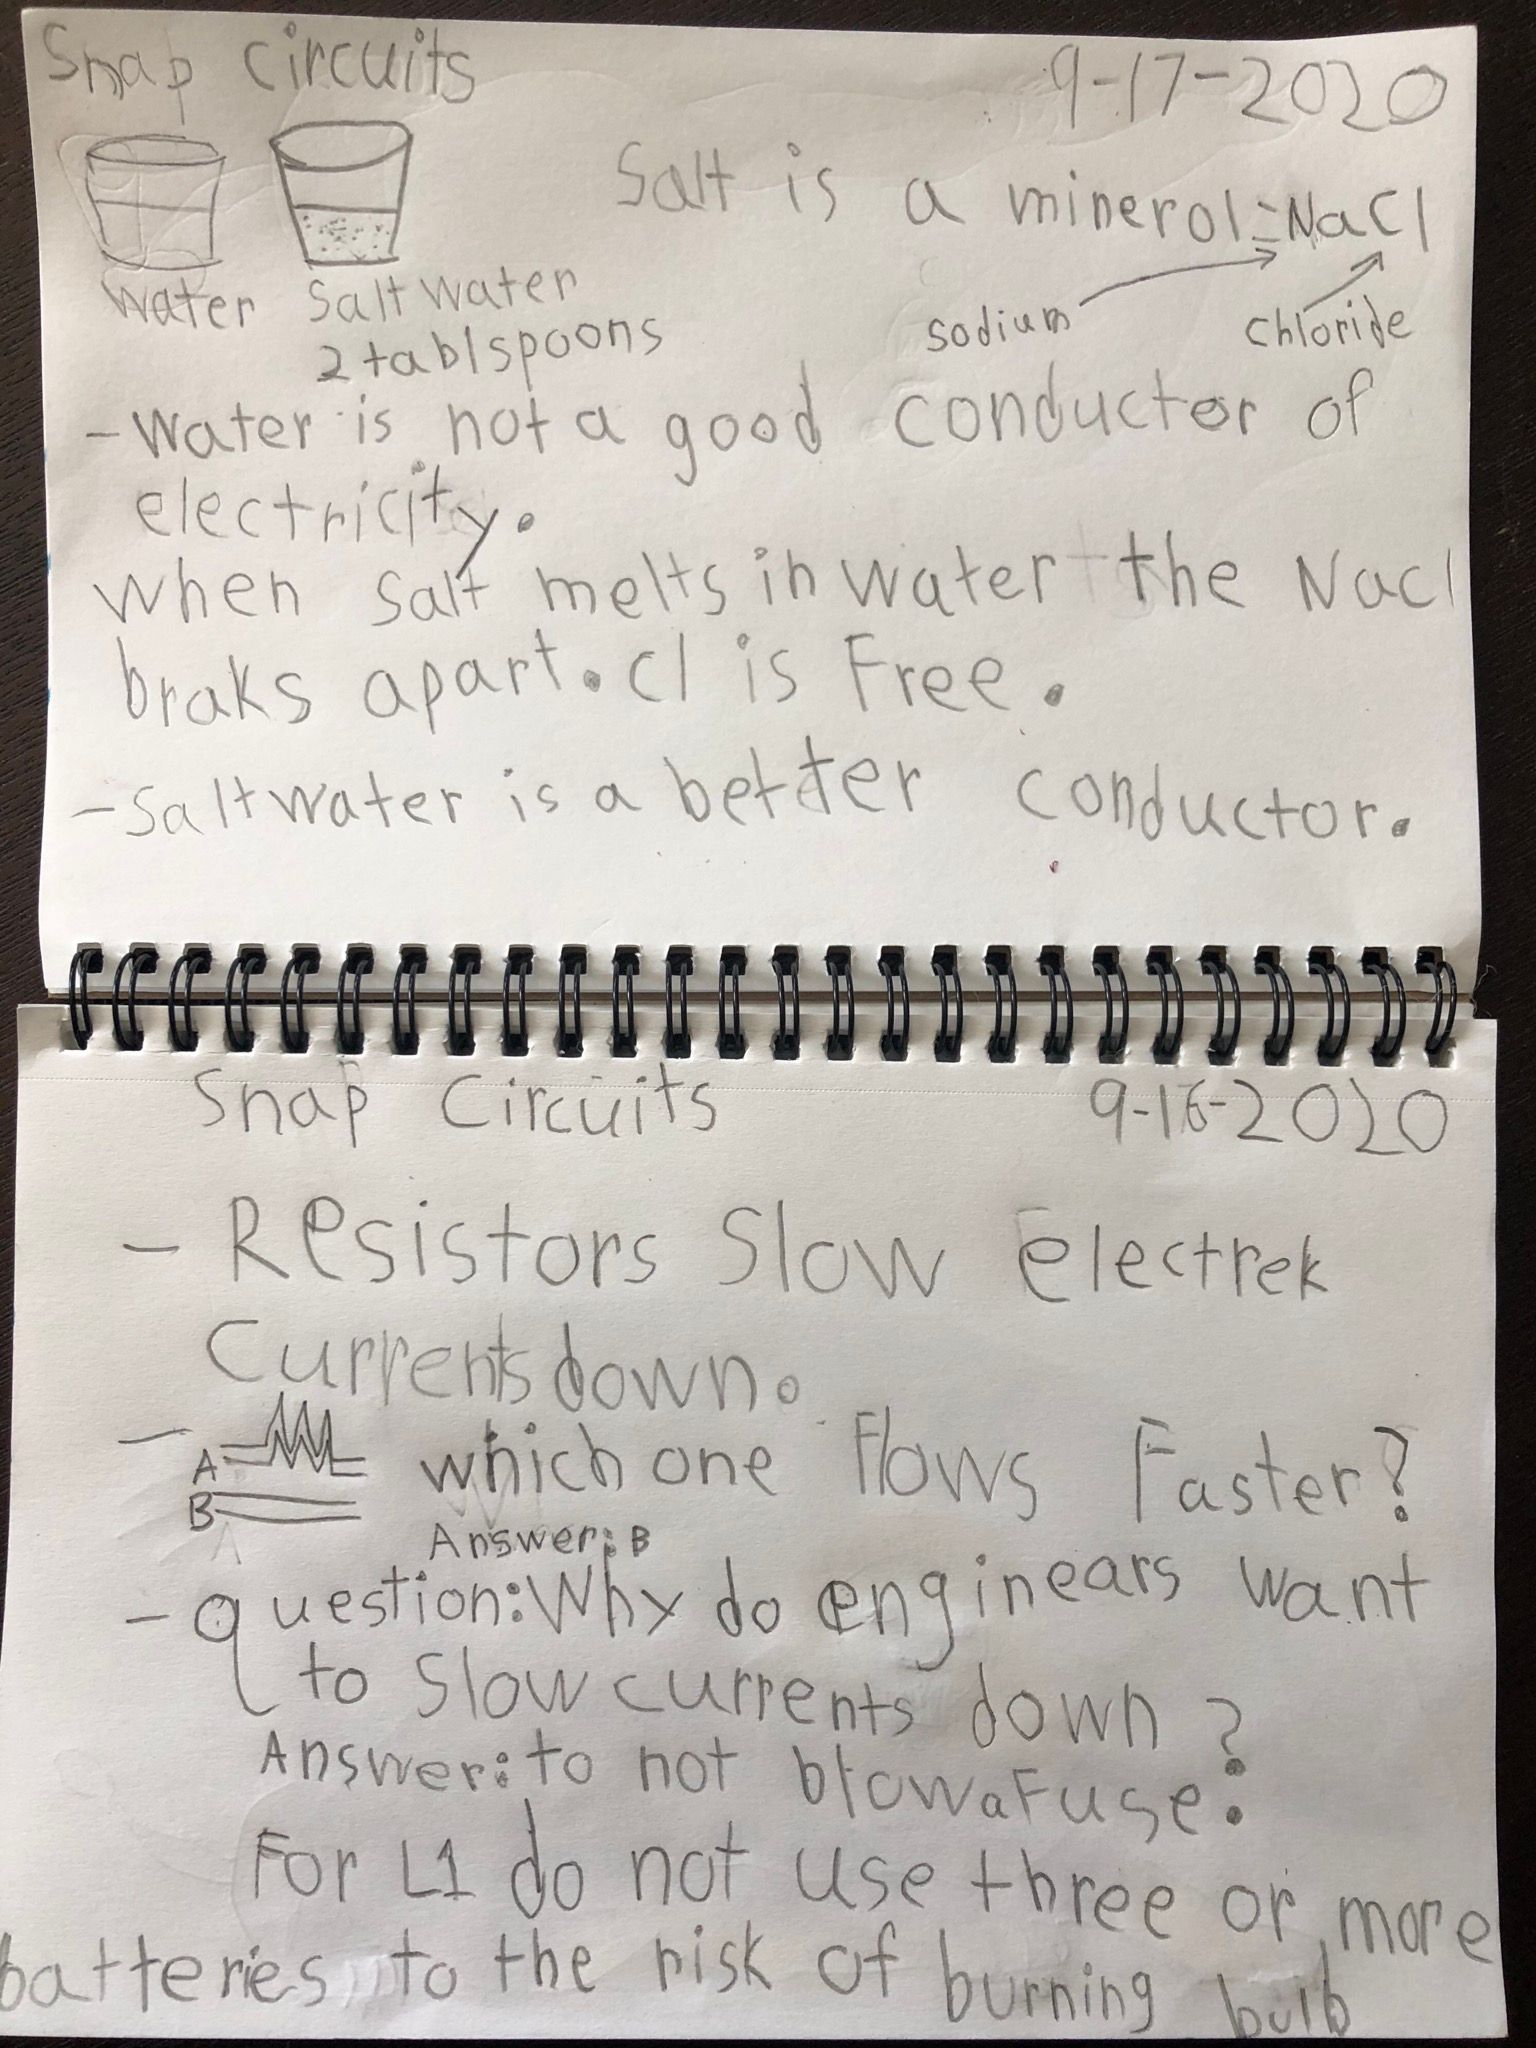 Snap circuits 9-17-2020
Salt is a minerol = NaCl
sodium chloride
Water Salt water
2 tablspoons
- Water is not a good conductor of
electricity.
When salt melts in water the Nacl
braks apart. Cl is Free.
- Salt water is a better conductor.
Snap Circuits 9-16-2020
- Resistors Slow electrek
Currents down.
- A which one Flows Faster?
B
Answer: B
- question: Why do enginears want
to slow currents down?
Answer: to not blow a Fuse.
For L1 do not use three or more
batteries to the risk of burning bulb